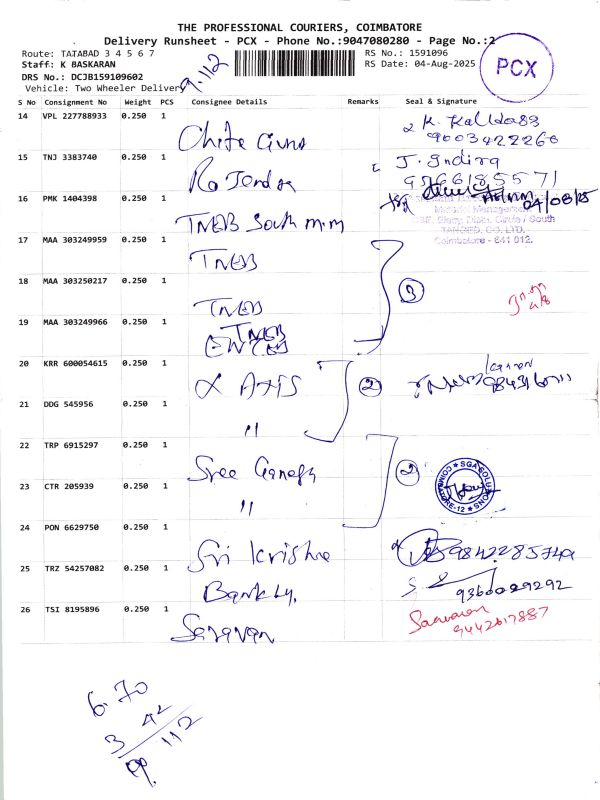 THE PROFESSIONAL COURIERS, COIMBATORE
Delivery Runsheet - PCX - Phone No.:9047080280 - Page No.:2
Route: TATABAD 3 4 5 6 7
RS No.: 1591096
Staff: K BASKARAN
RS Date: 04-Aug-2025
DRS No.: DCJB159109602
Vehicle: Two Wheeler Delivery
9.112
PCX
S No Consignment No Weight PCS Consignee Details Remarks Seal & Signature
14 VPL 227788933 0.250 1
K. Kalidass
9003422260
15 TNJ 3383740 0.250 1
J. Indira
9566185571
16 PMK 1404398 0.250 1 TNEB South m.m
04/08/25
TANGED. CO. LTD.
Coimbatore - 641 012.
17 MAA 303249959 0.250 1 TNEB
18 MAA 303250217 0.250 1 TNEB
3
19 MAA 303249966 0.250 1 TNEB
20 KRR 600054615 0.250 1 AXIS
2
21 DDG 545956 0.250 1 "
22 TRP 6915297 0.250 1 Sree Ganesh
2
SGA SOLUTIONS
COIMBATORE-12
23 CTR 205939 0.250 1 "
24 PON 6629750 0.250 1 Sri Krishna
25 TRZ 54257082 0.250 1
9360029292
26 TSI 8195896 0.250 1 Saravan
Saravanan
9442617887
6.70
3 42
112